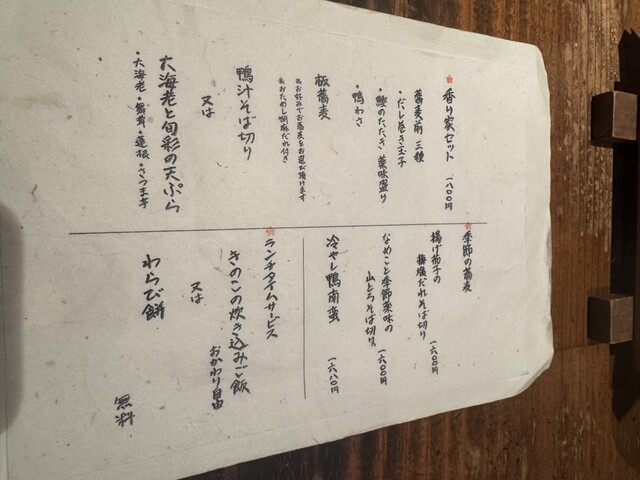 香り家セット 一八〇〇円
蕎麦前 三種
・だし巻き玉子
・鰹のたたき 薬味盛り
・鴨わさ
板蕎麦
※お好みでお蕎麦をお選び頂けます
※おためし胡麻だれ付き
鴨汁そば切り
又は
大海老と旬彩の天ぷら
・大海老・舞茸・蓮根・さつま芋
季節の蕎麦
揚げ茄子の
梅塩だれそば切り 一六〇〇円
なめこと季節薬味の
山とろそば切り 一六〇〇円
冷やし鴨南蛮 一六八〇円
ランチタイムサービス
きのこの炊き込みご飯
おかわり自由
又は
わらび餅
無料